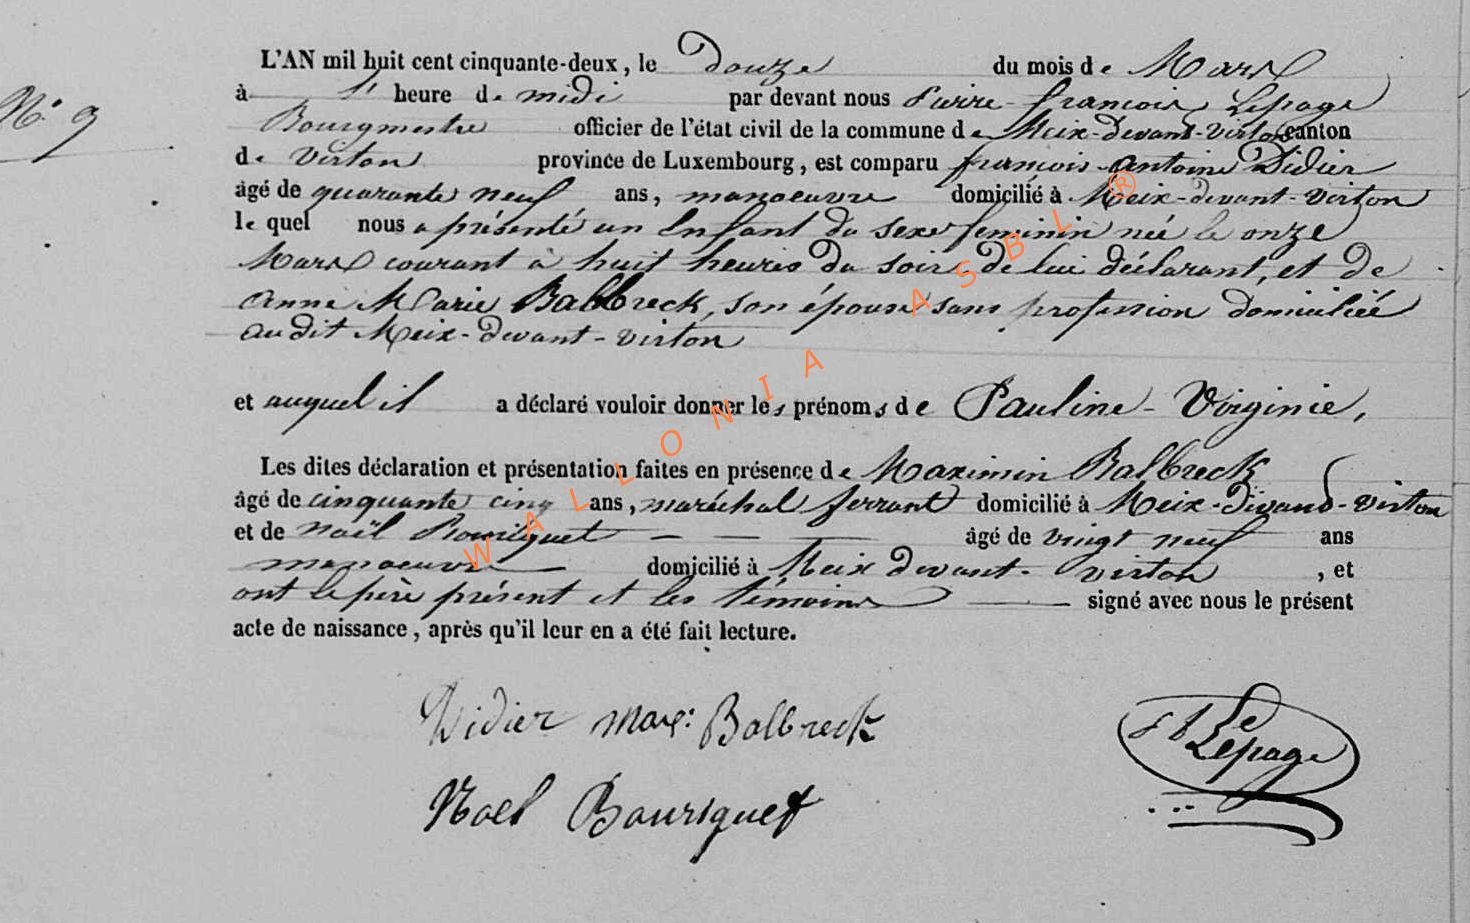 N° 9
L'AN mil huit cent cinquante-deux, le douze du mois de Mars
à 1' heure de midi par devant nous Pierre françois Lepage
Bourgmestre officier de l'état civil de la commune de Meix-devant-virton canton
de virton province de Luxembourg, est comparu françois Antoine Didier
âgé de quarante neuf ans, manoeuvre domicilié à Meix-devant-virton
le quel nous a présenté un Enfant du sexe feminin née le onze
Mars courant à huit heures du soir de lui déclarant, et de
Anne Marie Balbreck, son épouse sans profession domiciliée
audit Meix-devant-virton
et auquel il a déclaré vouloir donner les prénoms de Pauline-Virginie,
Les dites déclaration et présentation faites en présence de Maximin Balbreck
âgé de cinquante cinq ans, maréchal ferrant domicilié à Meix-devand-virton
et de Noël Bouriquet — — — âgé de vingt neuf ans
manoeuvre — domicilié à Meix devant-virton, et
ont le père présent et les témoins — signé avec nous le présent
acte de naissance, après qu'il leur en a été fait lecture.
Didier Max: Balbreck
Lepage
Noel Bouriquet
WALLONIA ASBL ®